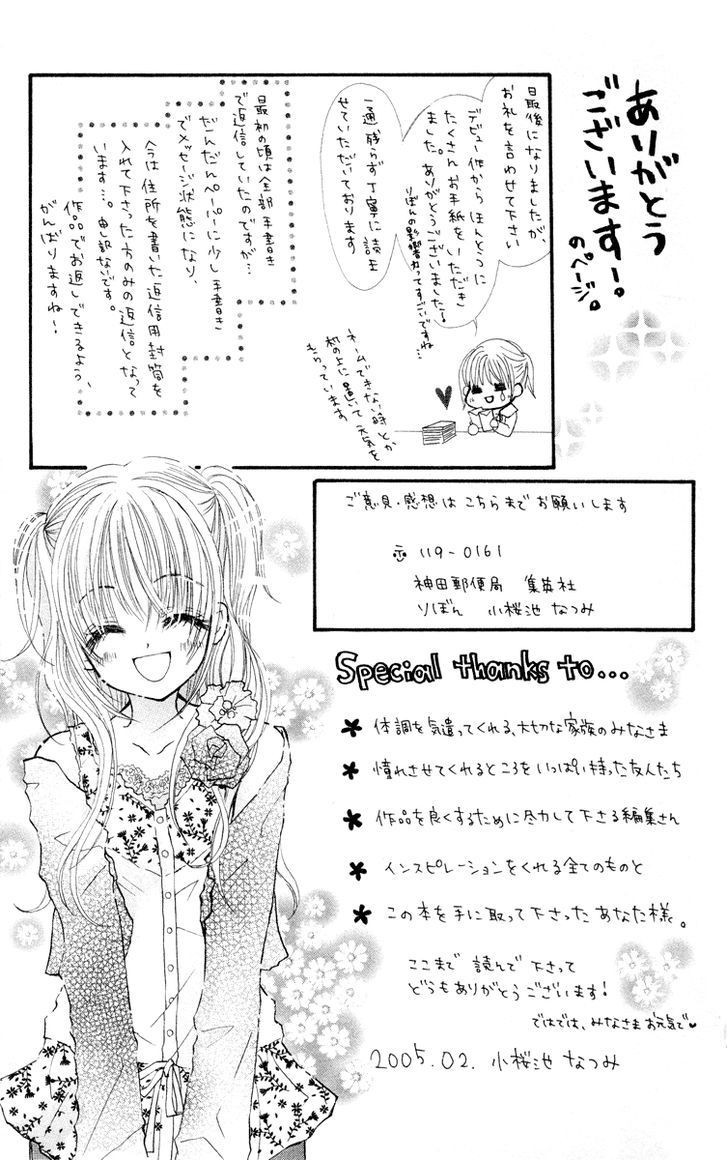 ありがとう
ございます！
のページ。
最後になりましたが、
お礼を言わせて下さい
デビュー作からほんとうに
たくさんお手紙をいただき
ました。ありがとうございました！
りぼんの影響力ってすごいですね…
一通残らず丁寧に読ま
せていただいております
ネームできない時とか
机の上に置いて元気を
もらっています
最初の頃は全部手書き
で返信していたのですが…
だんだんペーパーに少し手書き
でメッセージ状態になり、
今は住所を書いた返信用封筒を
入れて下さった方のみの返信となって
います…。申し訳ないです。
作品でお返しできるよう、
がんばりますね！
ご意見・感想はこちらまでお願いします
119-0161
神田郵便局 集英社
りぼん 小桜池なつみ
Special thanks to...
* 体調を気遣ってくれる、大切な家族のみなさま
* 憧れさせてくれるところをいっぱい持った友人たち
* 作品を良くするために尽力して下さる編集さん
* インスピレーションをくれる全てのものと
* この本を手に取って下さったあなた様。
ここまで読んで下さって
どうもありがとうございます！
ではでは、みなさまお元気で♥
2005.02. 小桜池なつみ